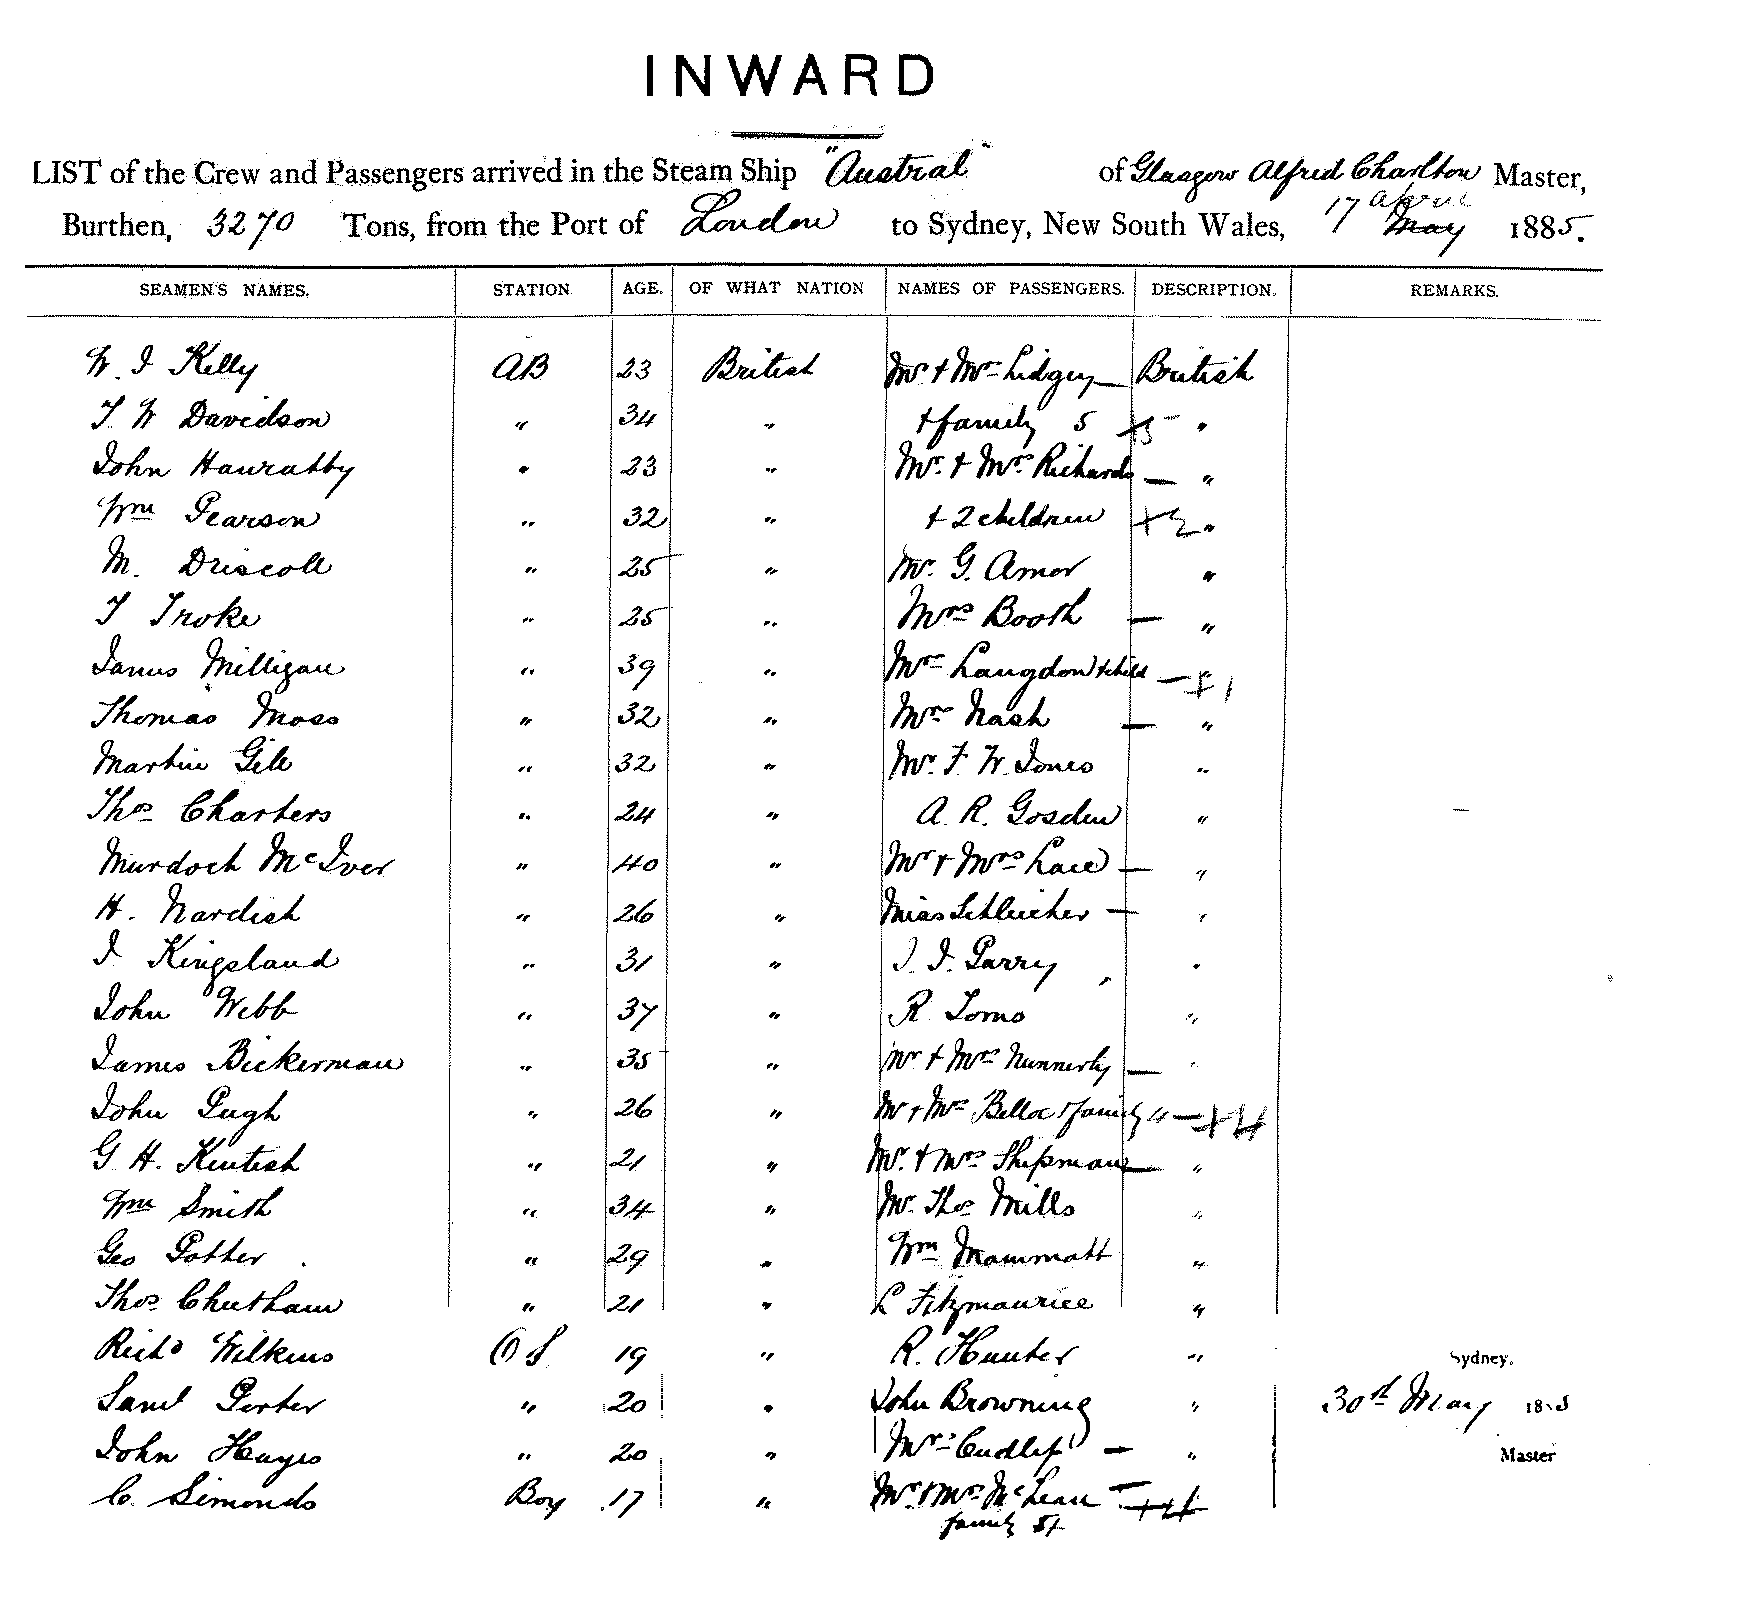 INWARD
LIST of the Crew and Passengers arrived in the Steam Ship "Austral" of Glasgow Alfred Charlton Master,
Burthen, 3270 Tons, from the Port of London to Sydney, New South Wales, 17 April May 1885.
SEAMEN'S NAMES. STATION AGE. OF WHAT NATION NAMES OF PASSENGERS. DESCRIPTION. REMARKS.
W. J Kelly AB 23 British Mr & Mrs Lidgey — British
T W Davidson " 34 " & family 5 +5 "
John Hanratty " 23 " Mr. & Mrs Richards — "
Wm Pearson " 32 " & 2 children +2 "
M. Driscoll " 25 " Mr. G. Amor "
T Troke " 25 " Mrs Booth — "
James Milligan " 39 " Mrs Langdon & child — +1
Thomas Moss " 32 " Mrs Nash — "
Martin Gill " 32 " Mr. F. W. Jones "
Thos Charters " 24 " A. R. Gosden "
Murdoch McIver " 40 " Mr & Mrs Lace — "
H. Nardish " 26 " Miss Schleicher — "
J Kingsland " 31 " J. J. Parry "
John Webb " 37 " R. Toms "
James Bickerman " 35 " Mr & Mrs Nunnerly — "
John Pugh " 26 " Mr & Mrs Belloc & family 4 — +4
G H. Kentish " 21 " Mr. & Mrs Shipman — "
Wm Smith " 34 " Mr. Thos Mills "
Geo Potter " 29 " Wm Mammatt "
Thos Cheetham " 21 " L Fitzmaurice "
Richd Wilkins OS 19 " R. Hunter " Sydney,
Saml Porter " 20 " John Browning " 30th May 1885
John Hayes " 20 " Mrs Cudlip — " Master
C. Simonds Boy 17 " Mr & Mrs McLean — +4
family